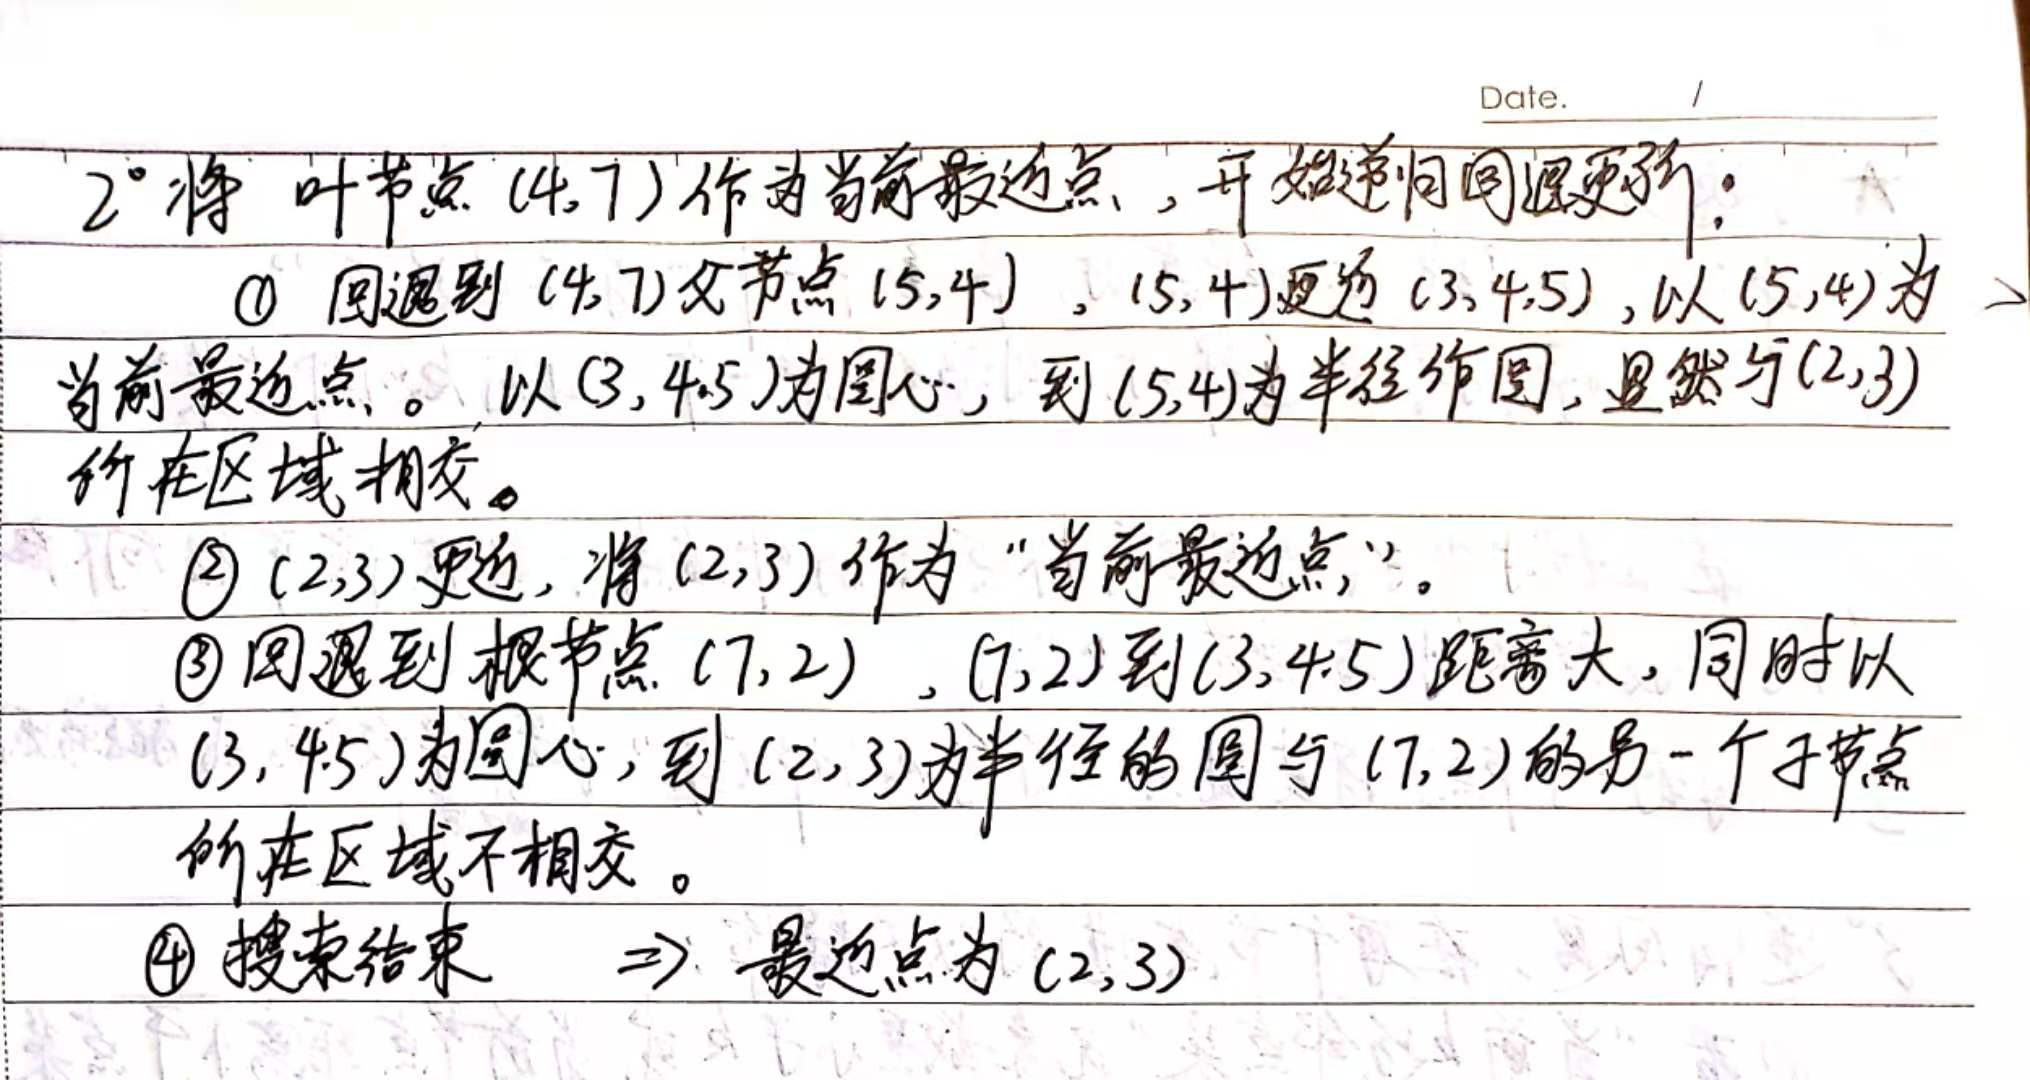 Date. /
2° 将 叶节点 (4,7) 作为当前最近点，开始递归回溯更新：
① 回溯到 (4,7) 父节点 (5,4)，(5,4)更近 (3,4.5)，以 (5,4) 为
当前最近点。以 (3, 4.5) 为圆心，到 (5,4) 为半径作圆，显然与 (2,3)
所在区域相交。
② (2,3) 更近，将 (2,3) 作为 "当前最近点"。
③ 回溯到根节点 (7,2)，(7,2) 到 (3,4.5) 距离大，同时以
(3, 4.5) 为圆心，到 (2,3) 为半径的圆与 (7,2) 的另一个子节点
所在区域不相交。
④ 搜索结束 => 最近点为 (2,3)